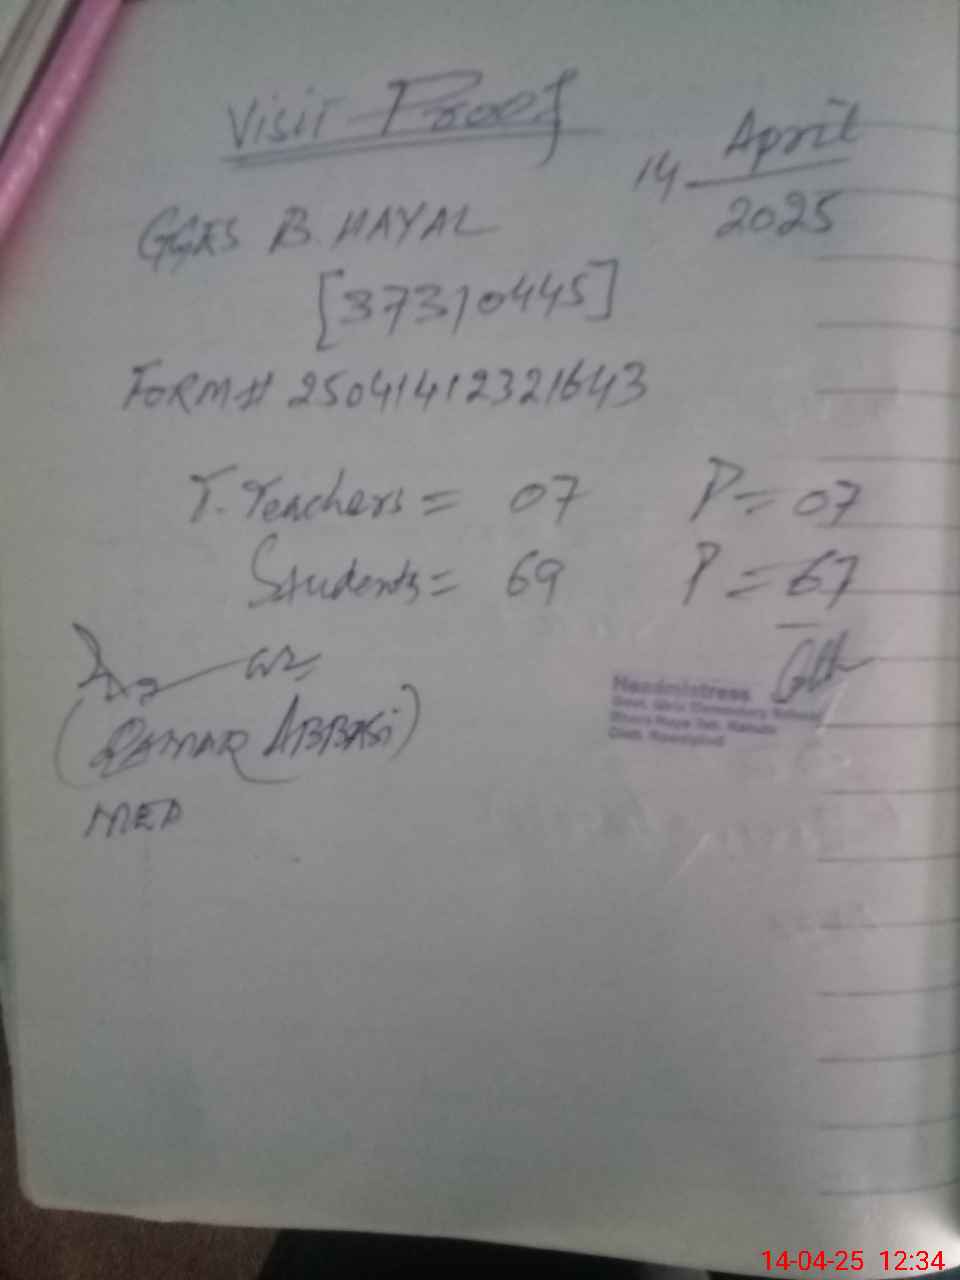 Visit Proof
14 April
2025
GGES B. HAYAL
[37310445]
FORM# 25041412321643
T. Teachers = 07 P = 07
Students = 69 P = 67
(QAMAR ABBASI)
MEA
Headmistress
Govt. Girls Elementary School
14-04-25 12:34